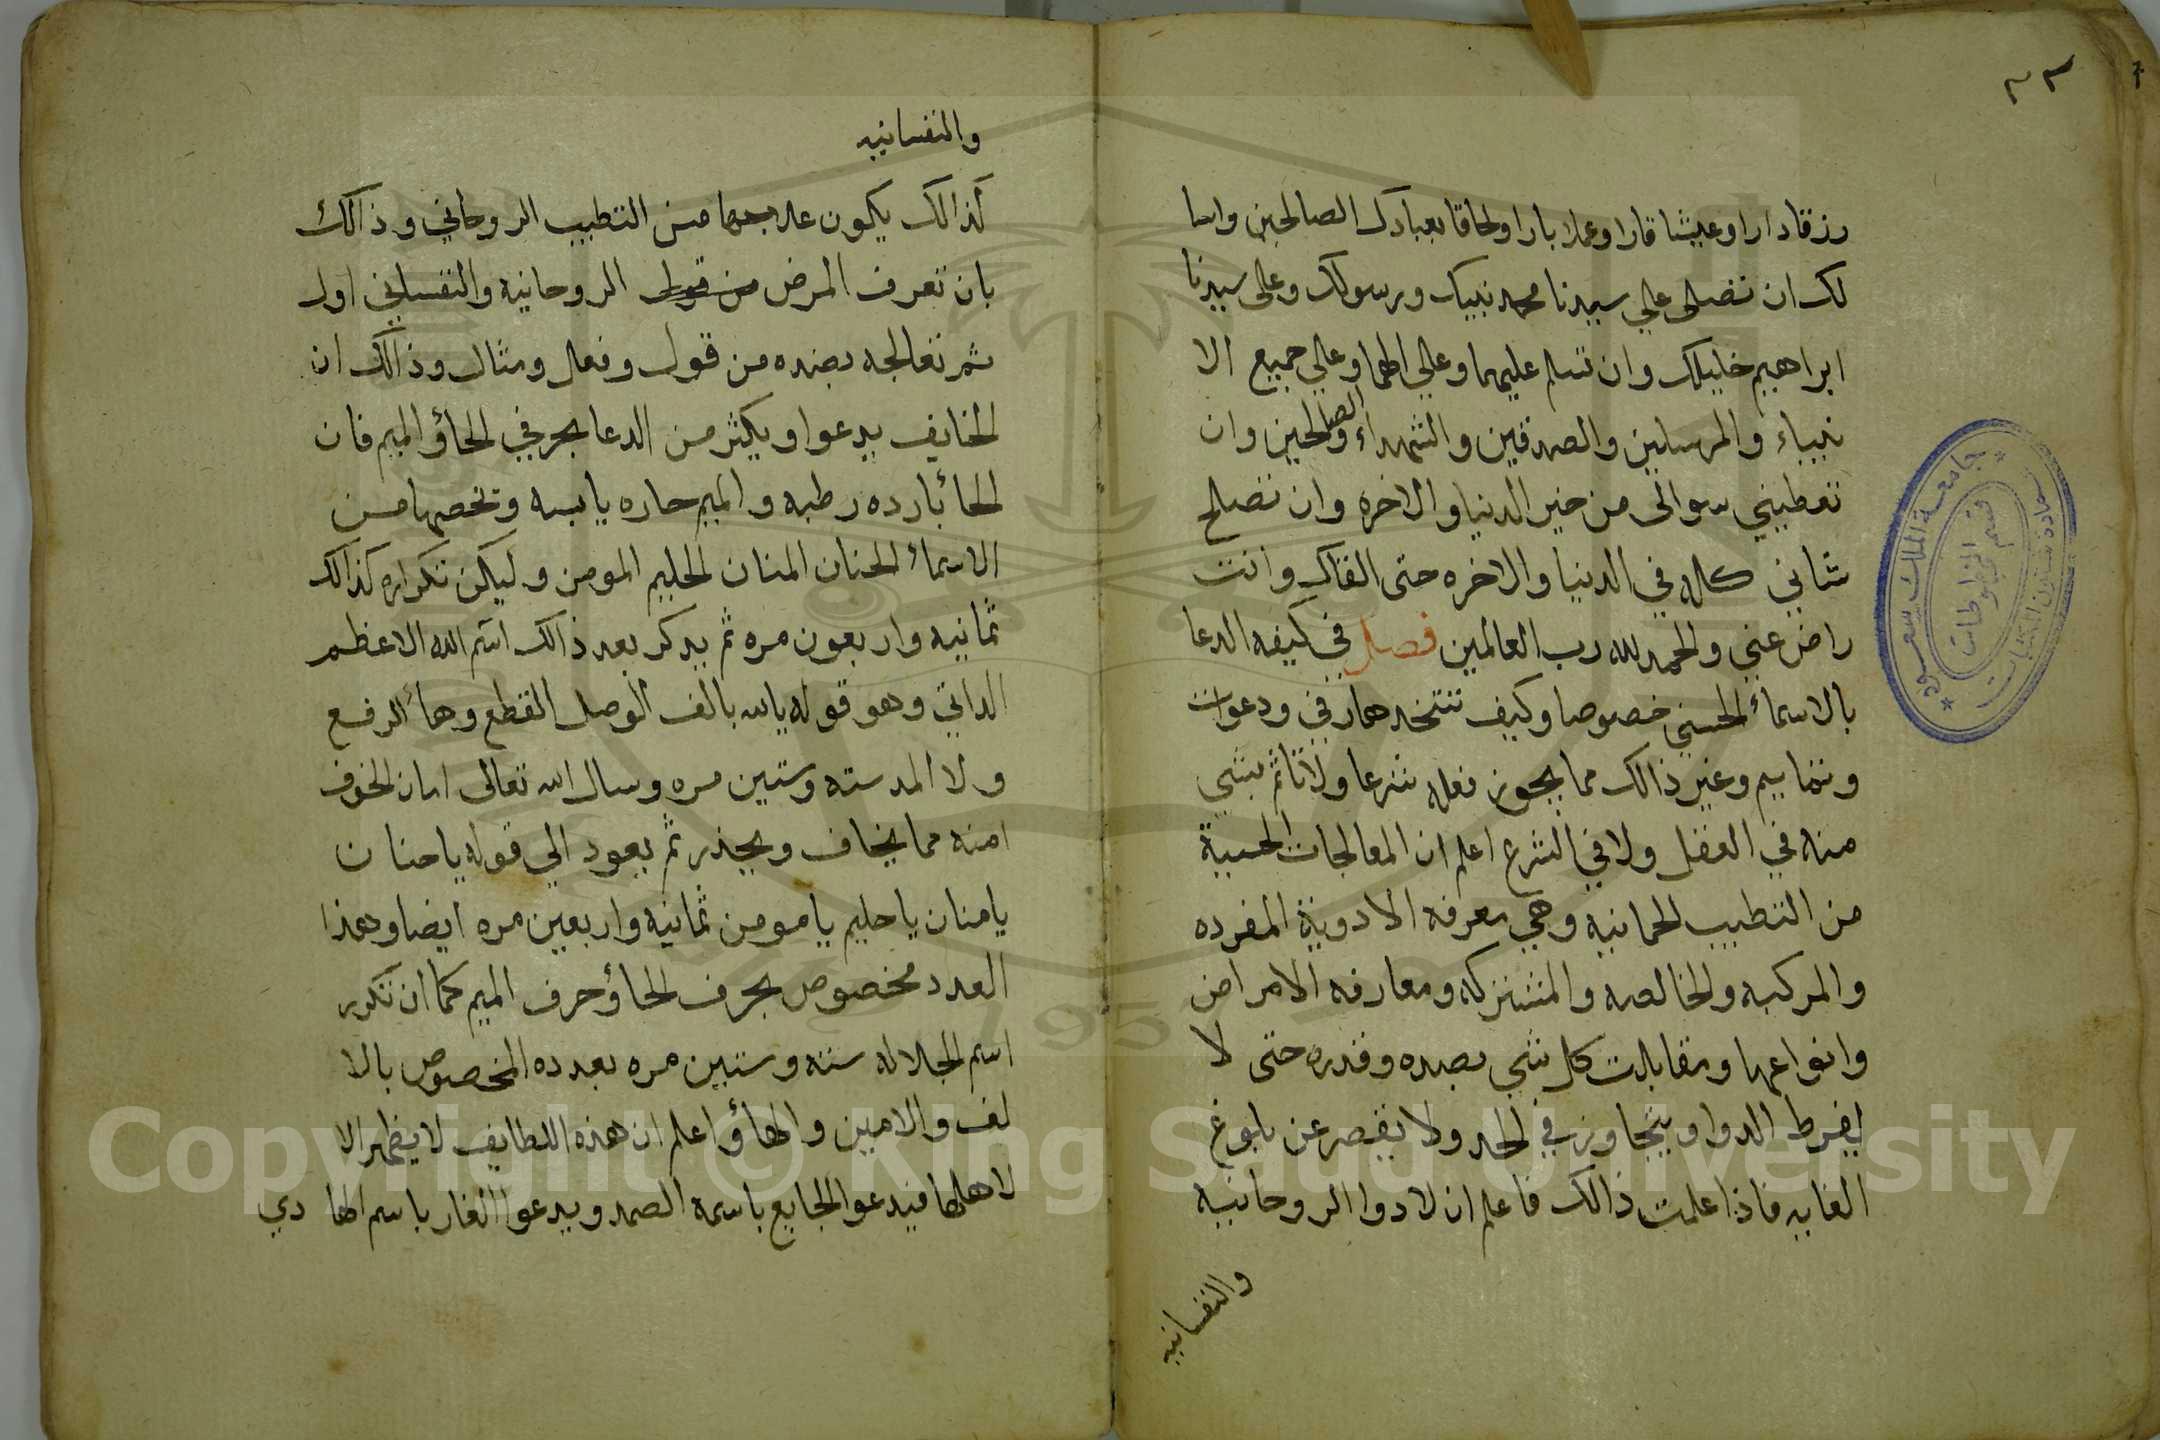 ٣٣
رزقا دارا وعيشا قارا وعملا بارا ولحاقا بعبادك الصالحين واسا
لك ان تصلى علي سيدنا محمد نبيك ورسولك وعلى سيدنا
ابراهيم خليلك وان تسلم عليهما وعلي الهما وعلي جميع الا
نبياء والمرسلين والصدقين والشهداء والصالحين وان
تعطيني سوالى من خير الدنيا والاخره وان تصلح
شاني كله في الدنيا والاخره حتى القاك وانت
راض عني والحمد لله رب العالمين فصل في كيفه الدعا
بالاسمائ الحسني خصوصا وكيف تتخد همارقي ودعوات
وتمايم وغير ذالك مما يجوز فعله شرعا ولا تاثم بشي
منه في العقل ولا في الشرع اعلم ان المعالجات الحسية
من التطبيب الجمانيه وهي معرفه الادوية المفرده
والمركبه والخالصه والمشتركه ومعارفه الامراض
وانواعها ومقابلات كل شي بصده وقدره حتى لا
يفرط الدوا ويتجاوز في الحد ولا يقصر عن بلوغ
الغايه فاذا علمت ذالك فاعلم ان لادوا الروحانيه
والنفسانيه
والنفسانيه
كذالك يكون علاجهما من التطبيب الروحاني وذالك
بان تعرف المرض من قول الروحانيه والنفساني اولا
ثم تعالجه بضده من قول وفعل ومثال وذالك ان
الخايف يدعوا ويكثر من الدعا بحرفي الحاؤ الميم فان
الحائ بارده رطبه والميم حاره يابسه وتخصها من
الاسمائ الحنان المنان الحليم المومن وليكن تكراره كذالك
ثمانيه واربعون مره ثم يدكر بعد ذالك اسم الله الاعظم
الداتي وهو قوله يالله بالف الوصل القطع وهائ الرفع
ولا المد سته وستين مره وسال الله تعالى امان الخوف
امنه مما يخاف ويحذر ثم يعود الي قوله يا حنان
يا منان يا حليم يا مومن ثمانيه واربعين مره ايضا وهذا
العدد مخصوص بحرف الحاؤ حرف الميم كما ان تكرر
اسم الجلاله سته وستين مره بعدده المخصوص بالا
لف والامين والهاؤ اعلم ان هذه اللطايف لا يظهر الا
لاهلها فيدعوا الجايع باسمه الصمد ويدعوا الغار باسم الهادي
جامعة الملك سعود
عمادة شئون المكتبات
قسم المخطوطات
Copyright © King Saud University
195